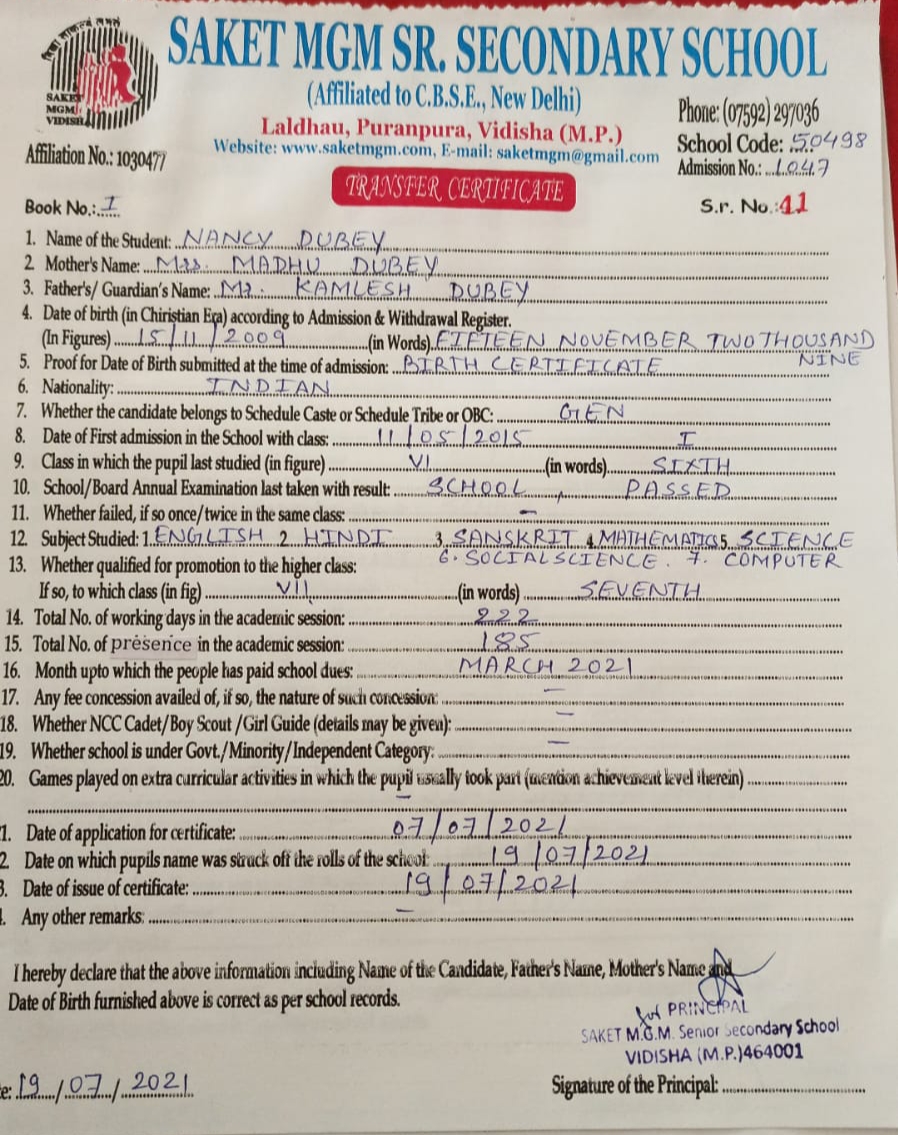 SAKET MGM SR. SECONDARY SCHOOL
(Affiliated to C.B.S.E., New Delhi)
SAKET
MGM
VIDISHA
Laldhau, Puranpura, Vidisha (M.P.)
Website: www.saketmgm.com, E-mail: saketmgm@gmail.com
Phone: (07592) 297036
School Code: 50498
Affiliation No.: 1030477
Admission No.: 1047
TRANSFER CERTIFICATE
Book No.: I
S.r. No.: 41
1. Name of the Student: NANCY DUBEY
2. Mother's Name: Mrs. MADHU DUBEY
3. Father's/ Guardian's Name: Mr. KAMLESH DUBEY
4. Date of birth (in Chiristian Era) according to Admission & Withdrawal Register.
(In Figures) 15/11/2009 (in Words) FIFTEEN NOVEMBER TWO THOUSAND
NINE
5. Proof for Date of Birth submitted at the time of admission: BIRTH CERTIFICATE
6. Nationality: INDIAN
7. Whether the candidate belongs to Schedule Caste or Schedule Tribe or OBC: GEN
8. Date of First admission in the School with class: 11/05/2015 I
9. Class in which the pupil last studied (in figure) VI (in words) SIXTH
10. School/Board Annual Examination last taken with result: SCHOOL, PASSED
11. Whether failed, if so once/twice in the same class: -
12. Subject Studied: 1. ENGLISH 2. HINDI 3. SANSKRIT 4. MATHEMATICS 5. SCIENCE
6. SOCIAL SCIENCE. 7. COMPUTER
13. Whether qualified for promotion to the higher class:
If so, to which class (in fig) VII (in words) SEVENTH
14. Total No. of working days in the academic session: 222
15. Total No. of presence in the academic session: 185
16. Month upto which the people has paid school dues: MARCH 2021
17. Any fee concession availed of, if so, the nature of such concession: -
18. Whether NCC Cadet/Boy Scout /Girl Guide (details may be given): -
19. Whether school is under Govt./Minority/Independent Category: -
20. Games played on extra curricular activities in which the pupil usually took part (mention achievement level therein)
-
1. Date of application for certificate: 07/07/2021
2. Date on which pupils name was struck off the rolls of the school: 19/07/2021
3. Date of issue of certificate: 19/07/2021
. Any other remarks: -
I hereby declare that the above information including Name of the Candidate, Father's Name, Mother's Name and
Date of Birth furnished above is correct as per school records.
for PRINCIPAL
SAKET M.G.M. Senior Secondary School
VIDISHA (M.P.)464001
e: 19/07/2021
Signature of the Principal: